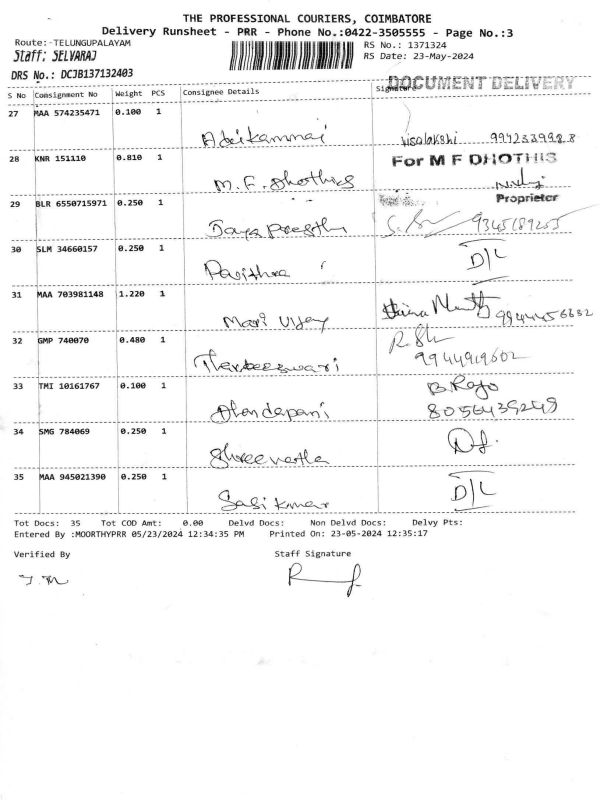 THE PROFESSIONAL COURIERS, COIMBATORE
Delivery Runsheet - PRR - Phone No.:0422-3505555 - Page No.:3
Route:-TELUNGUPALAYAM
RS No.: 1371324
Staff; SELVARAJ
RS Date: 23-May-2024
DRS No.: DCJB137132403
DOCUMENT DELIVERY
S No Consignment No Weight PCS Consignee Details Signature
27 MAA 574235471 0.100 1
visalakshi 9942339988
28 KNR 151110 0.810 1 For M F DHOTHIS
M.F. Dhothies
29 BLR 6550715971 0.250 1 Proprietor
9345189255
30 SLM 34660157 0.250 1 D/L
Pavithra
31 MAA 703981148 1.220 1
Mari Vijay 9944456632
32 GMP 740070 0.480 1
9944919602
33 TMI 10161767 0.100 1 B.Raja
Dhandapani 8056439249
34 SMG 784069 0.250 1
35 MAA 945021390 0.250 1 D/L
Sasi kumar
Tot Docs: 35 Tot COD Amt: 0.00 Delvd Docs: Non Delvd Docs: Delvy Pts:
Entered By :MOORTHYPRR 05/23/2024 12:34:35 PM Printed On: 23-05-2024 12:35:17
Verified By Staff Signature